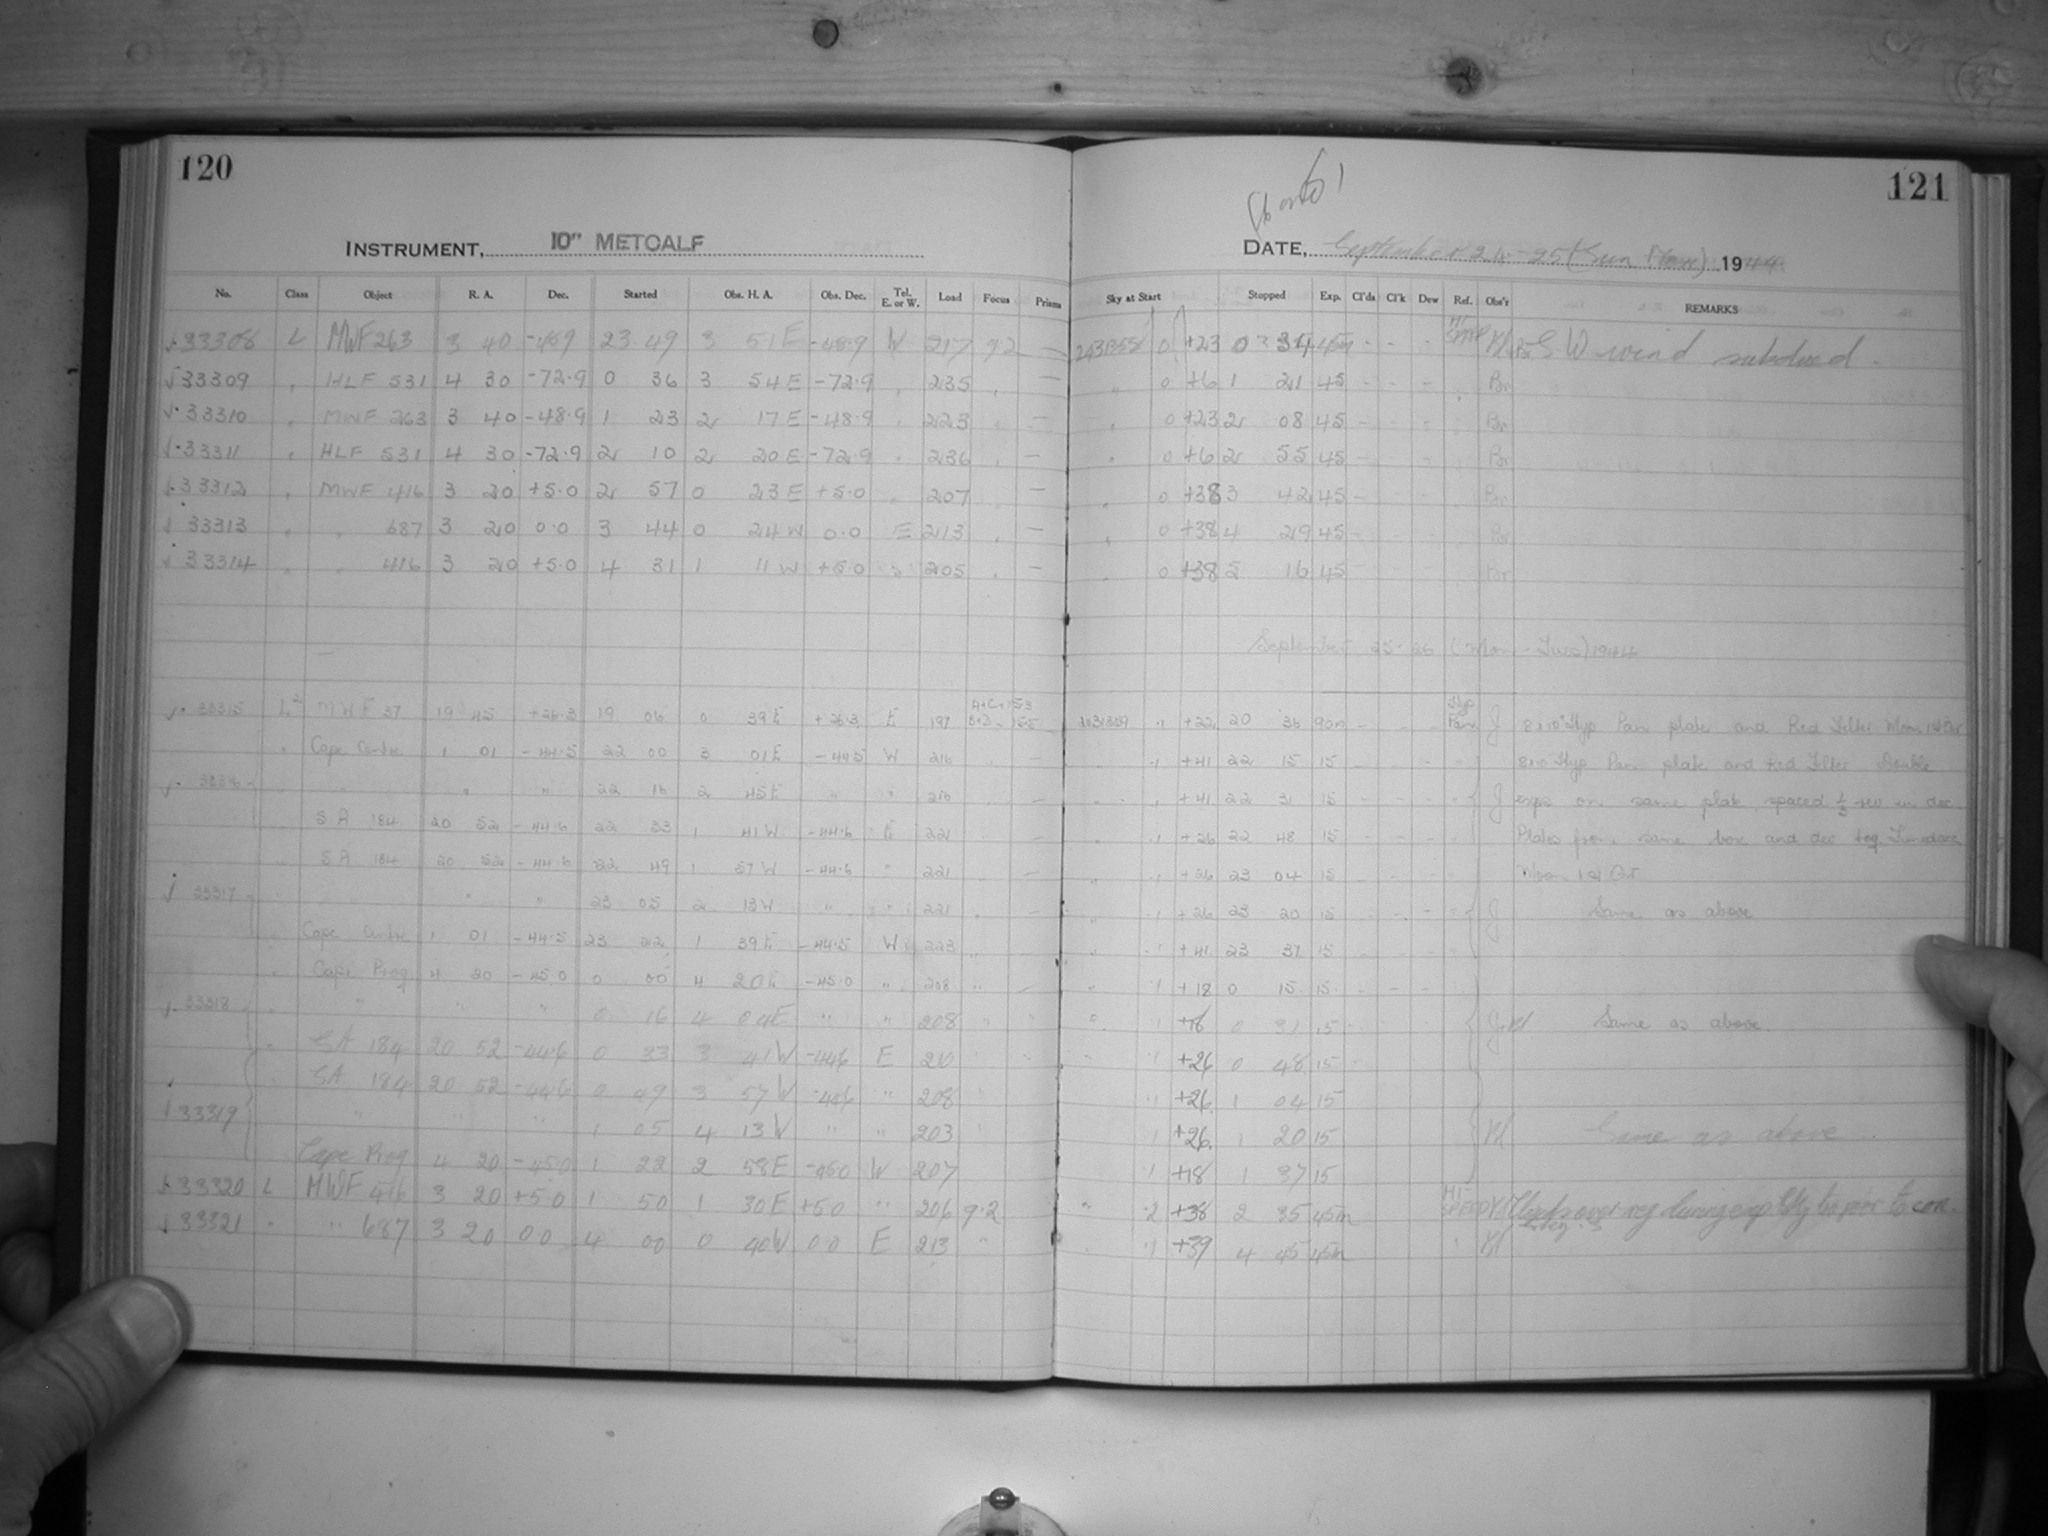 120
INSTRUMENT, 10" METCALF
No. Class Object R. A. Dec. Started Obs. H. A. Obs. Dec. Tel. E. or W. Load Focus Prisms
33308 L MWF 263 3 40 -48.9 23 49 3 51 E -48.9 W 217 9.2 —
33309 " HLF 531 4 30 -72.9 0 36 3 54 E -72.9 " 235 " —
33310 " MWF 263 3 40 -48.9 1 23 2 17 E -48.9 " 223 " —
33311 " HLF 531 4 30 -72.9 2 10 2 20 E -72.9 " 236 " —
33312 " MWF 416 3 20 +5.0 2 57 0 23 E +5.0 " 207 —
33313 " " 687 3 20 0.0 3 44 0 24 W 0.0 E 213 " —
33314 " " 416 3 20 +5.0 4 31 1 11 W +5.0 " 205 " —
33315 L MWF 37 19 45 +26.3 19 06 0 39 E +26.3 E 197
" Cape Centre 1 01 -44.5 22 00 3 01 E -44.5 W 216 —
33316 " " " 22 16 2 45 E " " 216 —
SA 184 20 52 -44.6 22 33 1 41 W -44.6 E 221
SA 184 20 52 -44.6 22 49 1 57 W -44.6 " 221 —
33317 " " " 23 05 2 13 W " " 221 —
Cape Centre 1 01 -44.5 23 22 1 39 E -44.5 W 223
Cape Prog 4 20 -45.0 0 00 4 20 E -45.0 " 208 " —
33318 " " " 0 16 4 04 E " " 208 "
SA 184 20 52 -44.6 0 33 3 41 W -44.6 E 210
SA 184 20 52 -44.6 0 49 3 57 W -44.6 " 208
33319 " " " 1 05 4 13 W " " 203
Cape Prog 4 20 -45.0 1 22 2 58 E -45.0 W 207
33320 L MWF 416 3 20 +5.0 1 50 1 30 E +5.0 " 206 9.2
33321 " " 687 3 20 0.0 4 00 0 40 W 0.0 E 213 "
121
DATE, September 24-25 (Sun Mon) 1944
Sky at Start Stopped Exp. Cl'ds Cl'k Dew Ref. Obs'r REMARKS
0 +23 0 34 45m - - - S W wind subdued.
" 0 +6 1 21 45 - - - Br
" 0 +23 2 08 45 - - - Br
" 0 +6 2 55 45 - - - Br
" 0 +38 3 42 45 - - - Br
" 0 +38 4 29 45 - - - Br
" 0 +38 5 16 45 - - - Br
September 25-26 (Mon - Tues) 1944
.1 +22 20 36 90m - - - Hyp Pan J 8x10 Hyp Pan plate and Red Filter Moon 1st Qr
" .1 +41 22 15 15 - - - 8x10 Hyp Pan plate and Red Filter Double
" +41 22 31 15 - - - J exps on same plate spaced 1/3 rev in dec.
" .1 +26 22 48 15 - - - Plates from same box and dev tog.
" .1 +26 23 04 15 - - - Moon 1st Qr
" .1 +26 23 20 15 - - - J Same as above
" .1 +41 23 37 15 - - -
" .1 +18 0 15 15 - - -
" .1 0 31 15 Same as above
" .1 +26 0 48 15
.1 +26 1 04 15
.1 +26 1 20 15 Same as above
.1 +18 1 37 15
" .2 +38 2 35 45m
.1 +39 4 45 45m